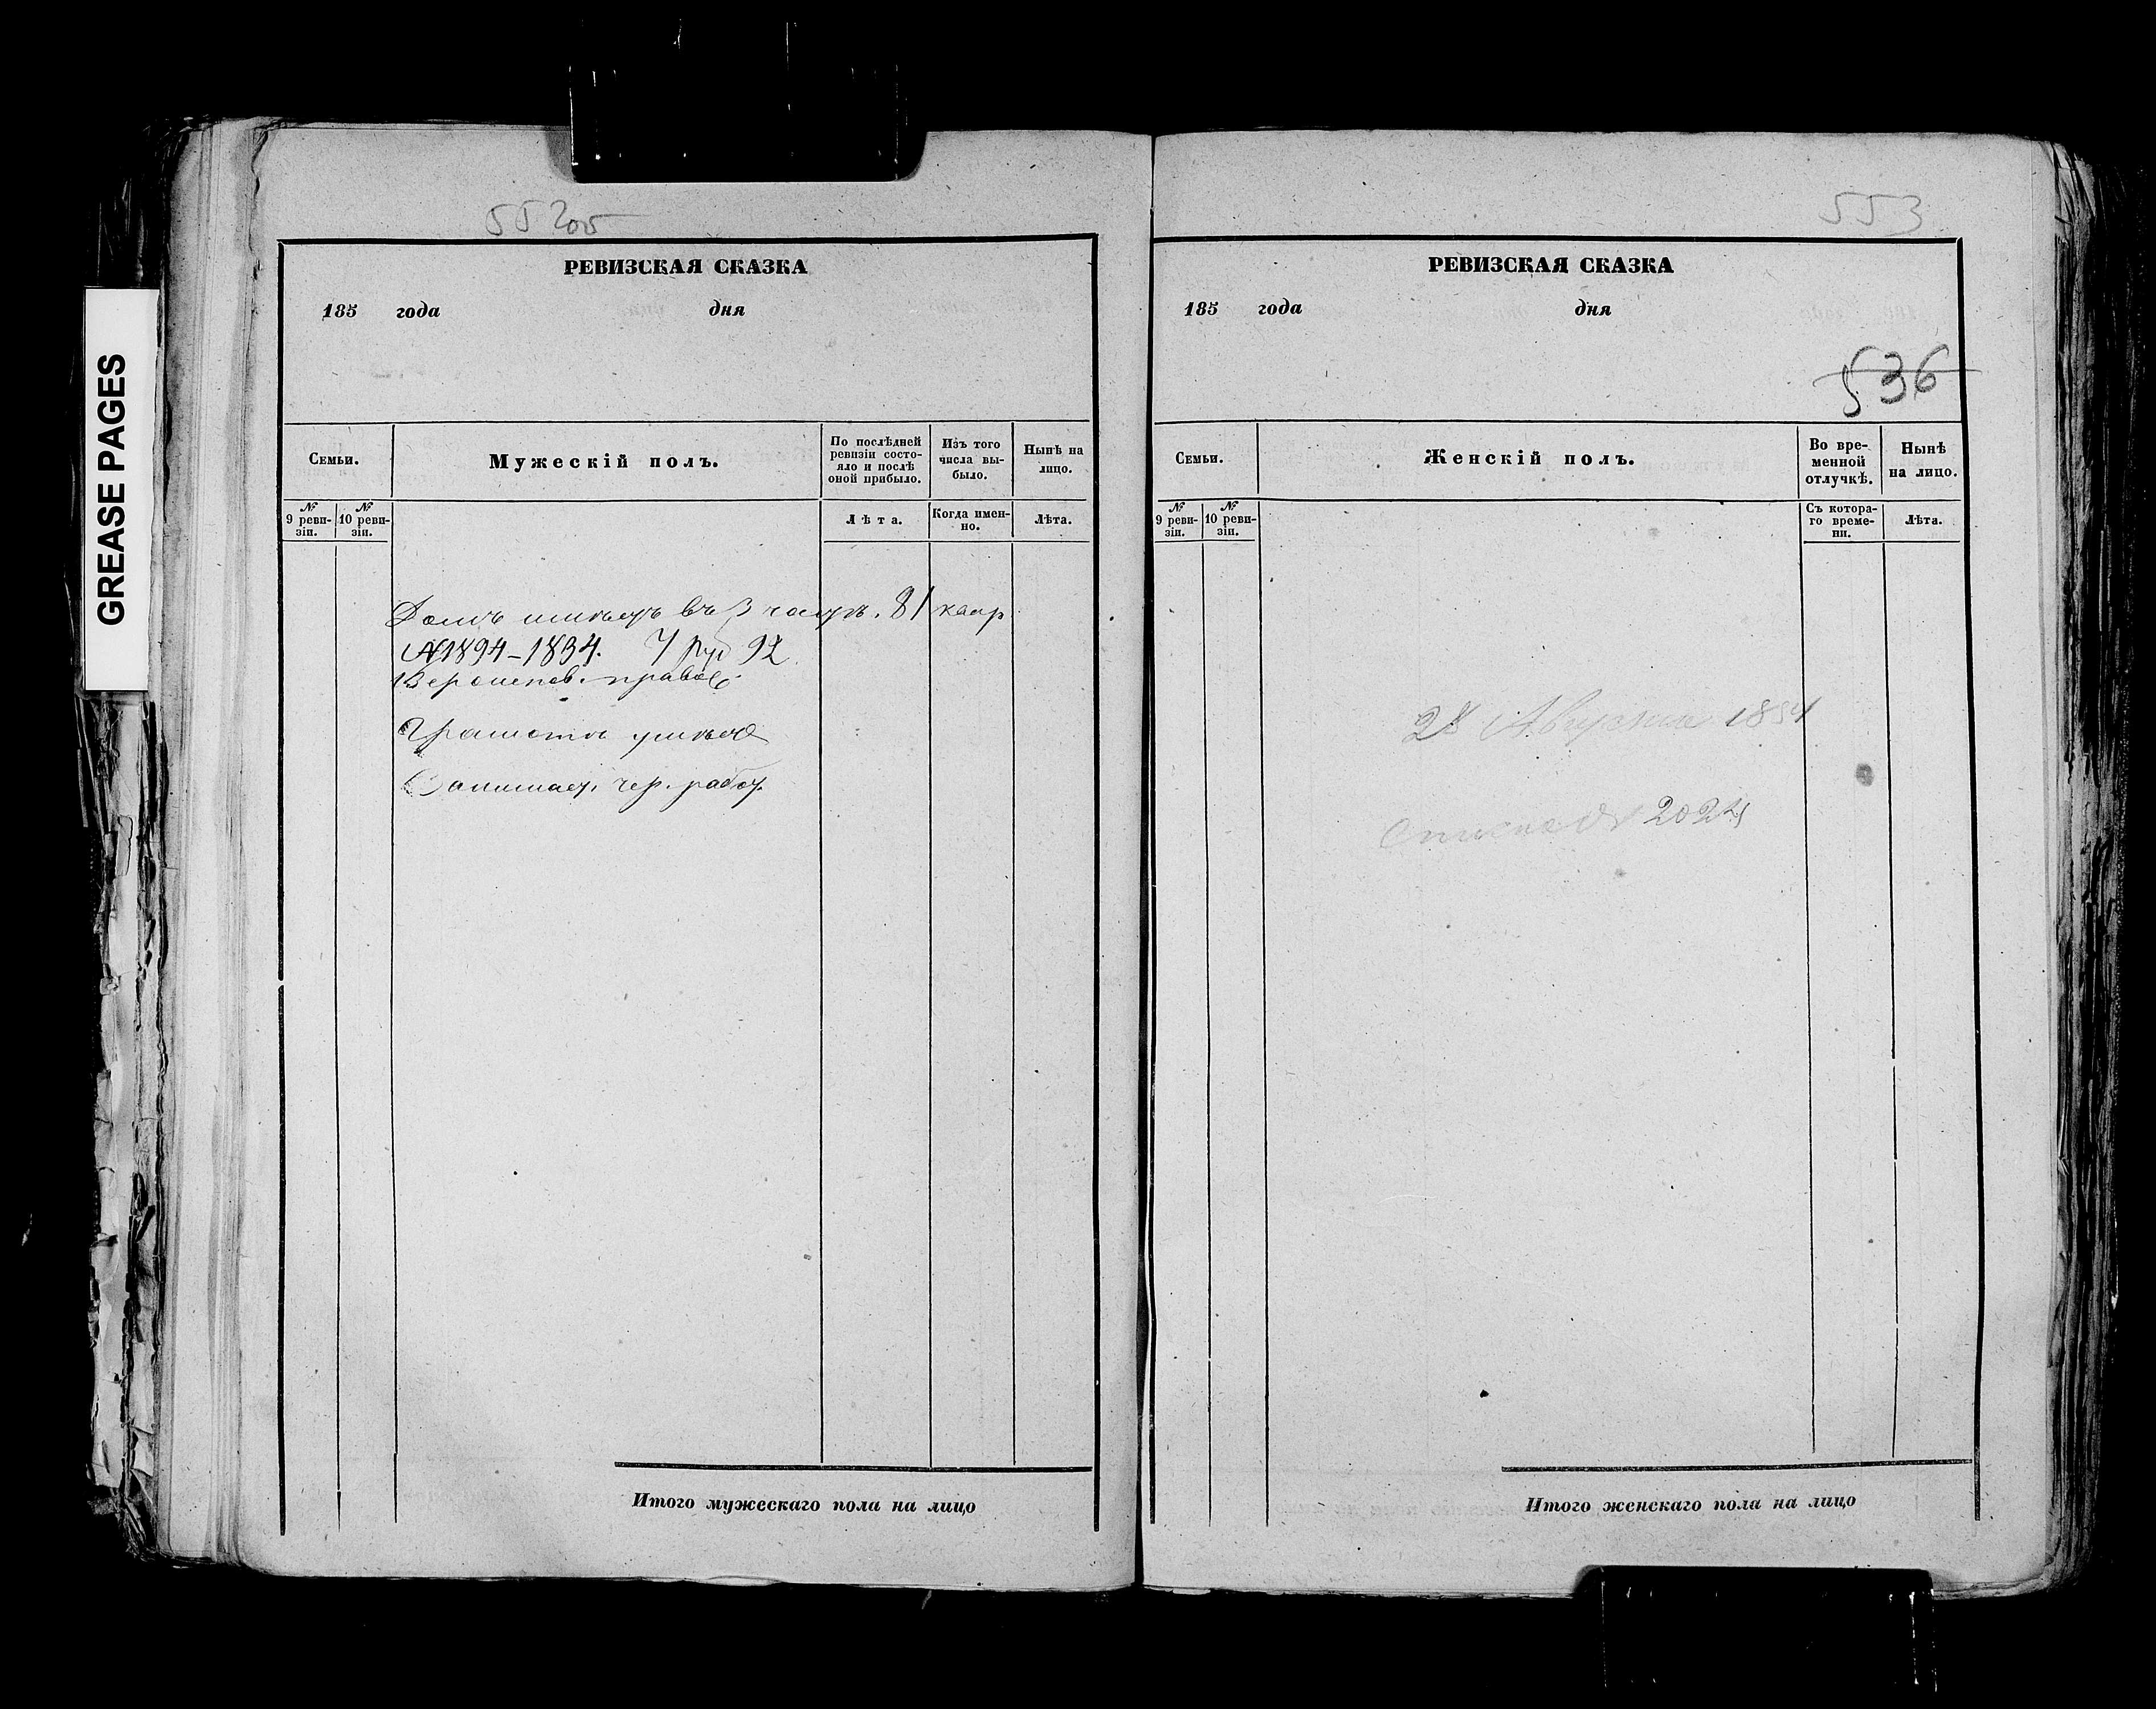 GREASE PAGES
552об
РЕВИЗСКАЯ СКАЗКА
185 года дня
Семьи.
Мужескій полъ.
По послѣдней ревизіи состояло и послѣ оной прибыло.
Изъ того числа выбыло.
Нынѣ на лицо.
№ 9 ревизіи.
№ 10 ревизіи.
Лѣта.
Когда именно.
Лѣта.
Домъ имѣетъ въ 3 части. 81 квар
№1894-1834. 7 руб 92
Вероиспов. правос
Грамотѣ умѣе
Занимает. чер. работ.
Итого мужескаго пола на лицо
553
РЕВИЗСКАЯ СКАЗКА
185 года дня
536
Семьи.
Женскій полъ.
Во временной отлучкѣ.
Нынѣ на лицо.
№ 9 ревизіи.
№ 10 ревизіи.
Съ котораго времени.
Лѣта.
28 Августа 1854
Итого женскаго пола на лицо